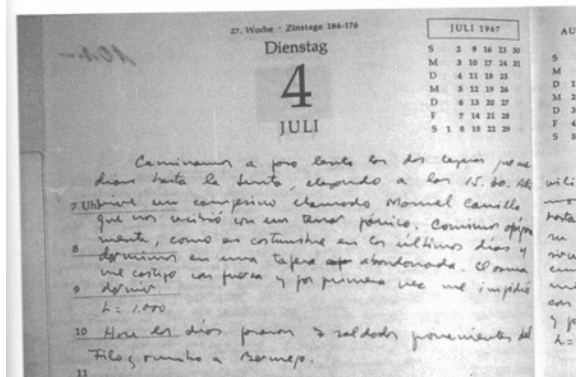 27. Woche · Zinstage 184-176
Dienstag
4
JULI
JULI 1967
S 2 9 16 23 30
M 3 10 17 24 31
D 4 11 18 25
M 5 12 19 26
D 6 13 20 27
F 7 14 21 28
S 1 8 15 22 29
Caminamos a paso lento las dos leguas
hasta la Junta, llegando a las 15.30. Allí
7 Uhr vive un campesino llamado Manuel Carrillo
que nos recibió con un terror pánico. Comimos opípara
8 mente, como es costumbre en los últimos días y
dormimos en una tapera abandonada. El asma
9 me castigó con fuerza y por primera vez me impidió
dormir
h = 1.000
10 días pasaron 7 soldados provenientes del
Filo y rumbo a Bermejo.
11
AU
S
M
D 1
M 2
D 3
F 4
S 5